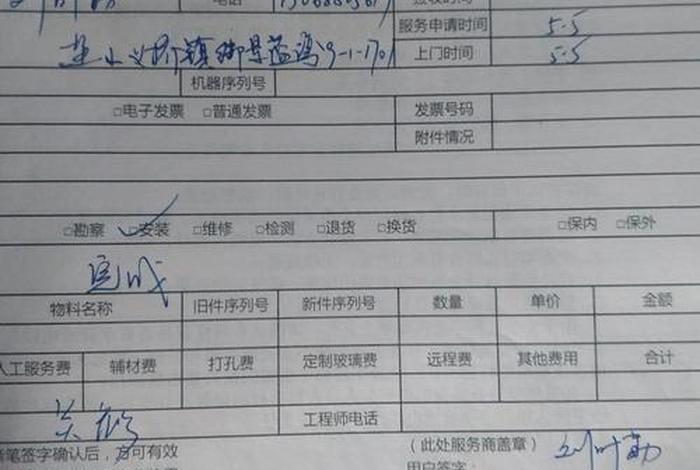 电话
服务申请时间 5.5
镇御景蓝湾9-1-1701 上门时间 5.5
机器序列号
□电子发票 □普通发票 发票号码
附件情况
□勘察 □安装 □维修 □检测 □退货 □换货 □保内 □保外
完成
物料名称 旧件序列号 新件序列号 数量 单价 金额
人工服务费 辅材费 打孔费 定制玻璃费 远程费 其他费用 合计
工程师电话
笔签字确认后,方可有效 (此处服务商盖章)